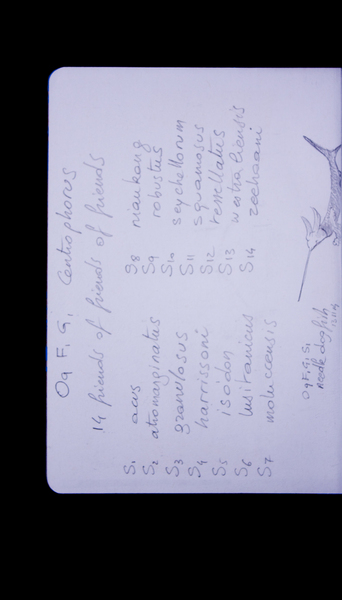 O9 F1 G1 Centrophorus
14 friends of friends of friends
S1 acus
S2 atromarginatus
S3 granulosus
S4 harrissoni
S5 isodon
S6 lusitanicus
S7 moluccensis
S8 niaukang
S9 robustus
S10 seychellorum
S11 squamosus
S12 tessellatus
S13 westraliensis
S14 zeehaani
O9 F1 G1 S1
needle dogfish